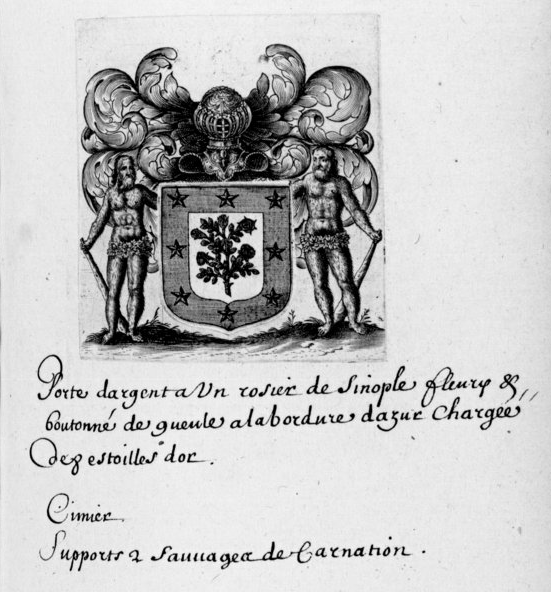 Porte dargent a Un rosier de Sinople fleury &
boutonné de gueule a la bordure dazur Chargée
De 8 estoilles dor.
Cimier
Supports 2 Sauuages de Carnation.